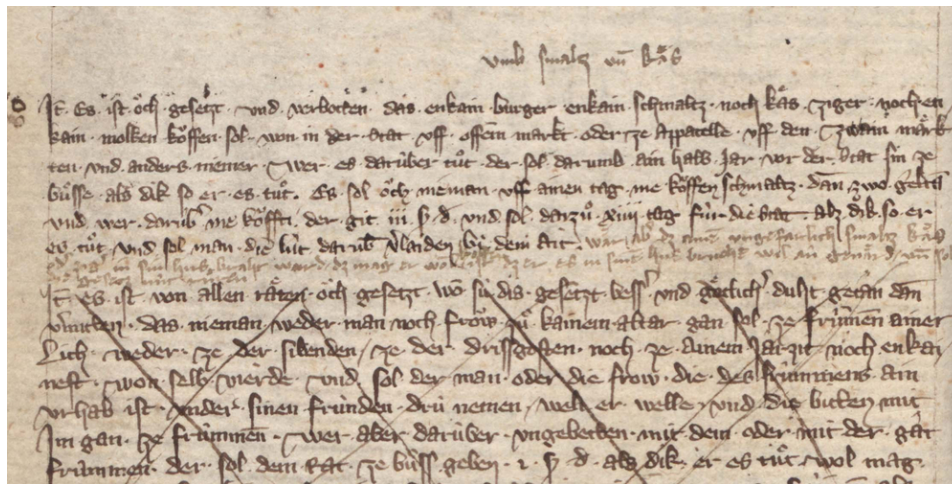 vmb smaltz vn̄ kaͤs
It̄ Es ist oͤch gesetzt vnd verbotten das enkain burger enkain schmaltz noch kaͤs ziger noch en
kain molken koͤffen sol won in der stat vff offem markt oder ze Appatelle vff den zwain maͤrk
ten vnd anders niener wer es daruͤber tuͦt der sol darumb ain halb Jar vor der stat sin ze
buͦsse als dik so er es tuͦt. Es sol oͤch nieman vff ainen tag me koͤffen schmaltz dan zwo gelten
vnd wer darub̄ me koͤffti der git iii ß d vnd sol darzuͦ xiiii tag fuͤr die stat alz dik so er
es tuͦt vnd sol man die luͤt darub̄ v̓laiden bi dem Ait waͤr ab dz aine vngefarlich smaltz kaͤs
in sin hus braht ward dz mag er wol er es in sine hus bruche wil an geuard vn̄ sol
It̄ es ist von allen raͤten oͤch gesetzt wo si dis gesetzt bess̓ vnd goͤtlich̓ duht getan dan
v̓mitten das nieman weder man noch frow zuͦ kainem altar gan sol ze fruͤmen ainer
Lich weder ze der sibenden ze der drissgosten noch ze ainem Jarzit noch enkai
nest won selb vierde vnd sol der man oder die frow die des fruͤmens ain
vrhab ist vnder sinen fruͤnden dru nemen weli er welle vnd die bitten mit
Im gan ze fruͤmmen wer aber daruͤber vngebetten mit dem oder mit der gat
fruͤmmen der sol dem Rat ze buͦss geben 1 ß d als dik er es tuͦt wol mag